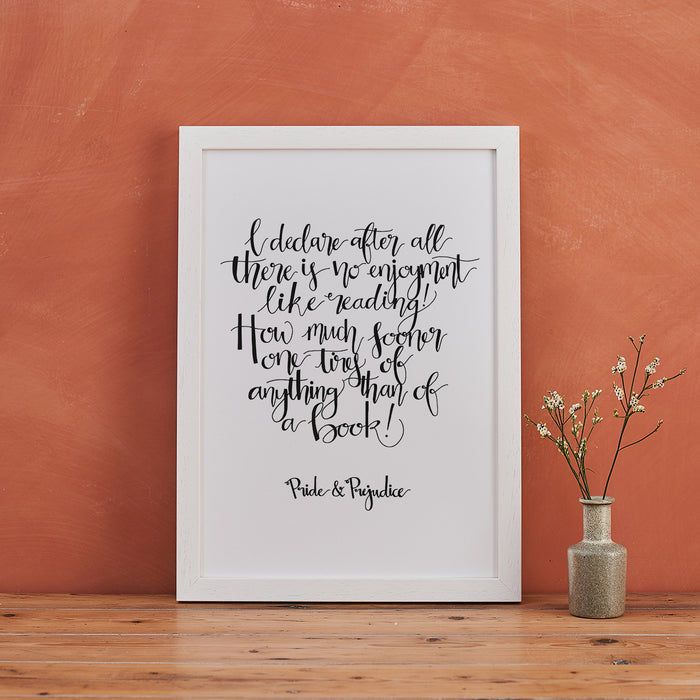 I declare after all
there is no enjoyment
like reading!
How much sooner
one tires of
anything than of
a book!
Pride & Prejudice